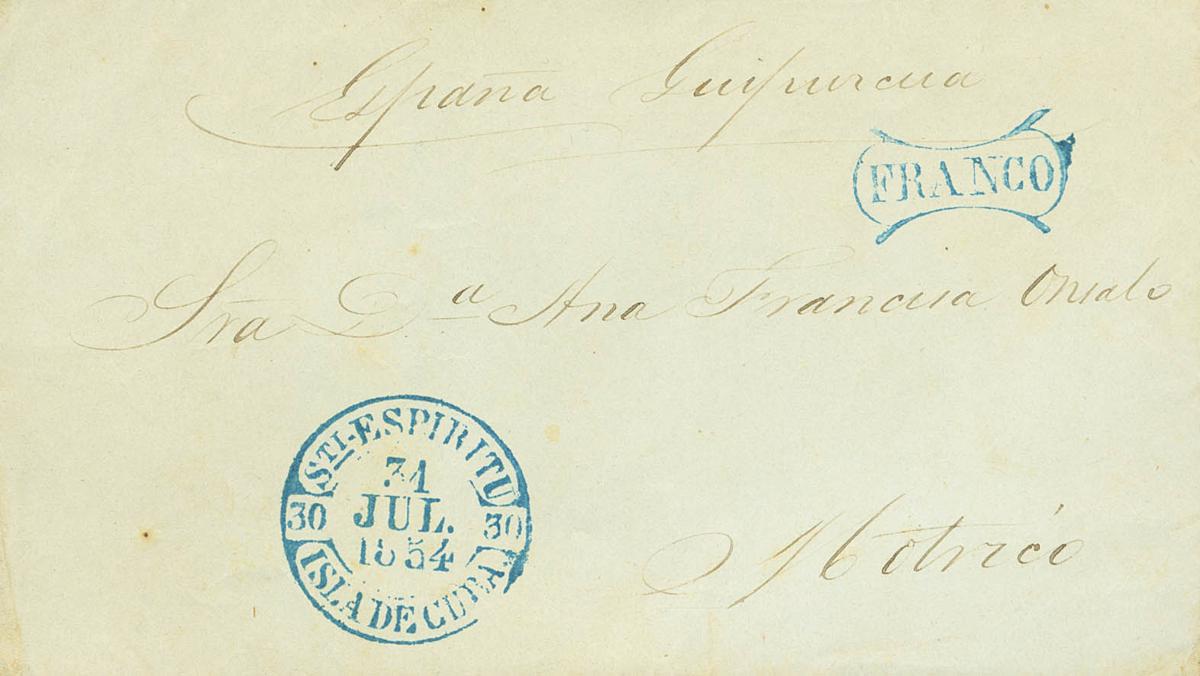 España Guipurcua
FRANCO
Sra D.a Ana Francisca
STI-ESPIRITU
31
JUL.
1854
30 30
ISLA DE CUBA
Motricó